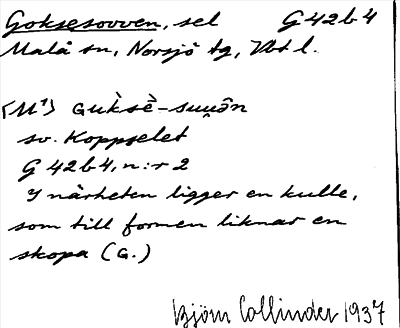 Goksesovven, sel G42b4
Malå sn, Norsjö tg, Vbt l.
[M¹] Guksè-
sv. Koppselet
G 42b4, n:r 2
I närheten ligger en kulle,
som till formen liknar en
skopa (G.)
Björn Collinder 1937